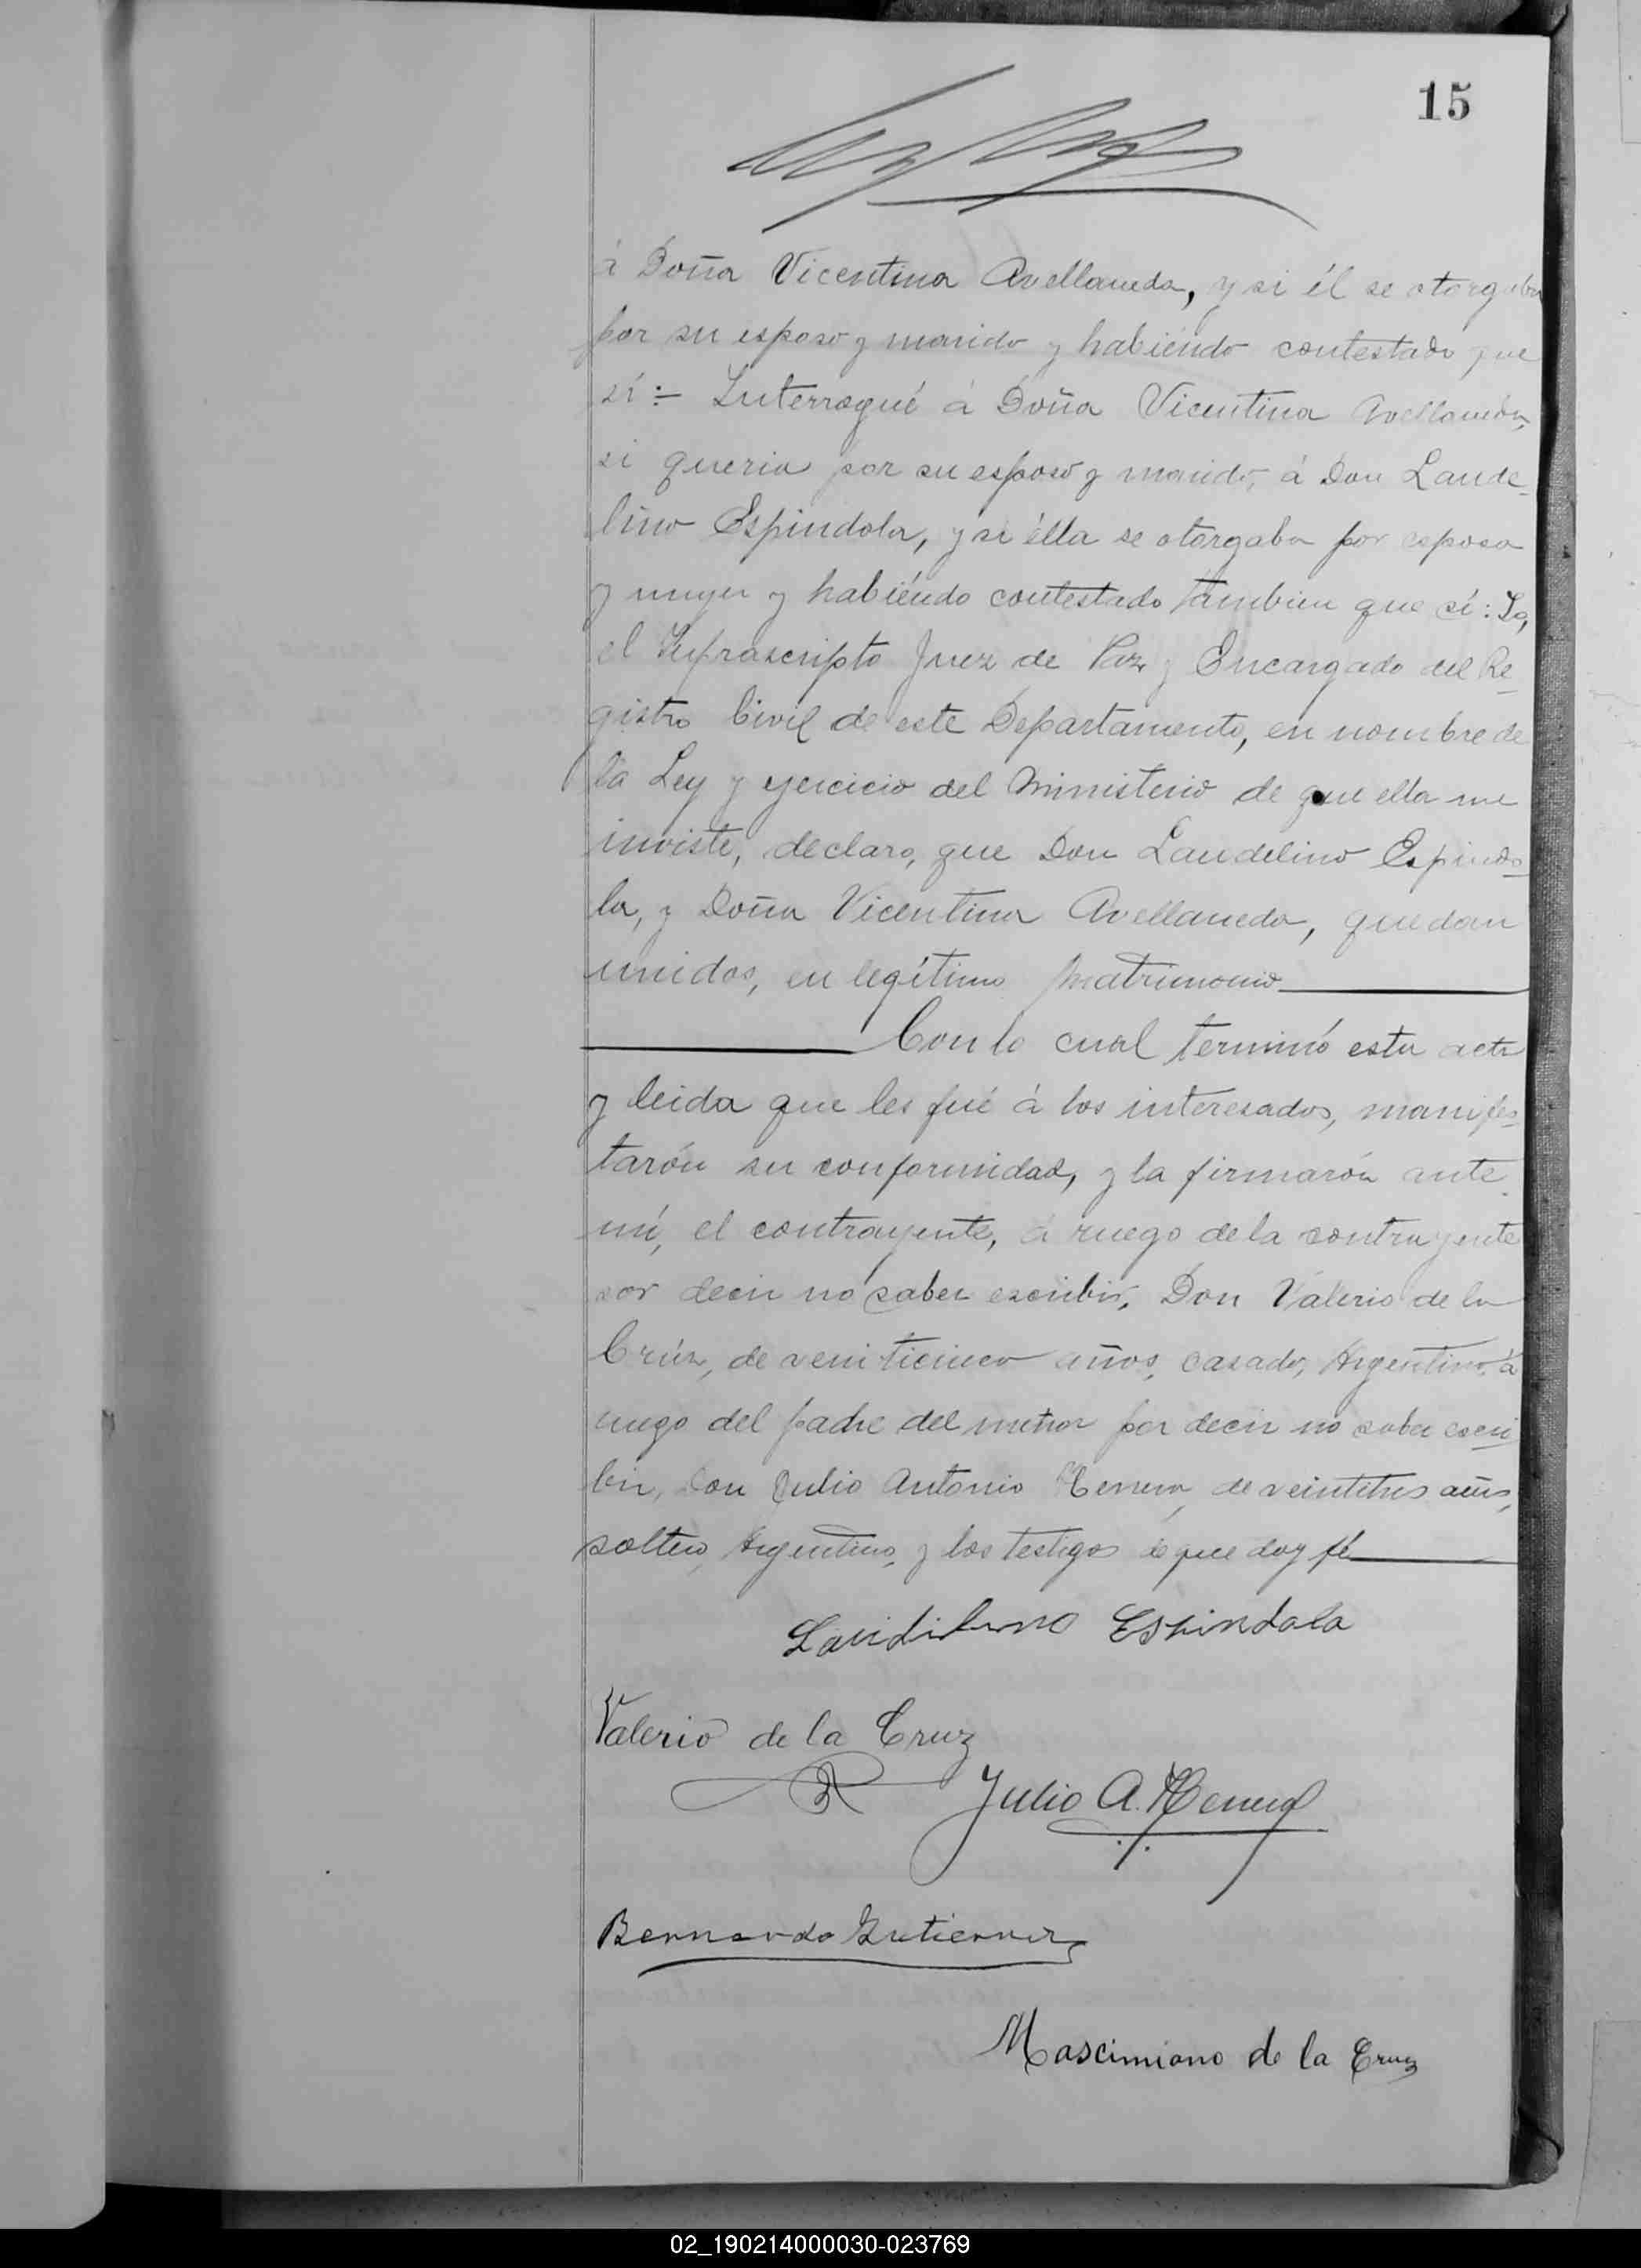 15
á Doña Vicentina Avellaneda, y si él se otorgaba
por su esposo y marido y habiéndo contestado que
sí :- Interrogué á Doña Vicentina Avellaneda,
si queria por su esposo y marido, á Don Laude-
lino Espindola, y si élla se otorgaba por esposa
y mujer y habiéndo contestado tambien que sí: Yo,
el Infrascripto Juez de Paz y Encargado del Re-
gistro Civil de este Departamento, en nombre de
la Ley y ejercicio del Ministerio de que ella me
inviste, declaro, que Don Laudelino Espindo-
la, y Doña Vicentina Avellaneda, quedan
unidos, en legítimo matrimonio
Con lo cual terminó esta acta
y leida que les fué á los interesados, manifes-
tarón su conformidad, y la firmarón ante
mí, el contrayente, á ruego de la contrayente
por decir no saber escribir, Don Valerio de la
Crúz, de veniticinco años, casado, Argentino, á
ruego del padre del menor por decir no saber escri-
bir, Don Julio Antonio de veintitres años,
soltero, Argentino, y los testigos de que doy fé
Laudilino Espindala
Valerio de la Cruz
Julio A.
Bernardo Gutierrez
Mascimiano de la Cruz
02_190214000030-023769